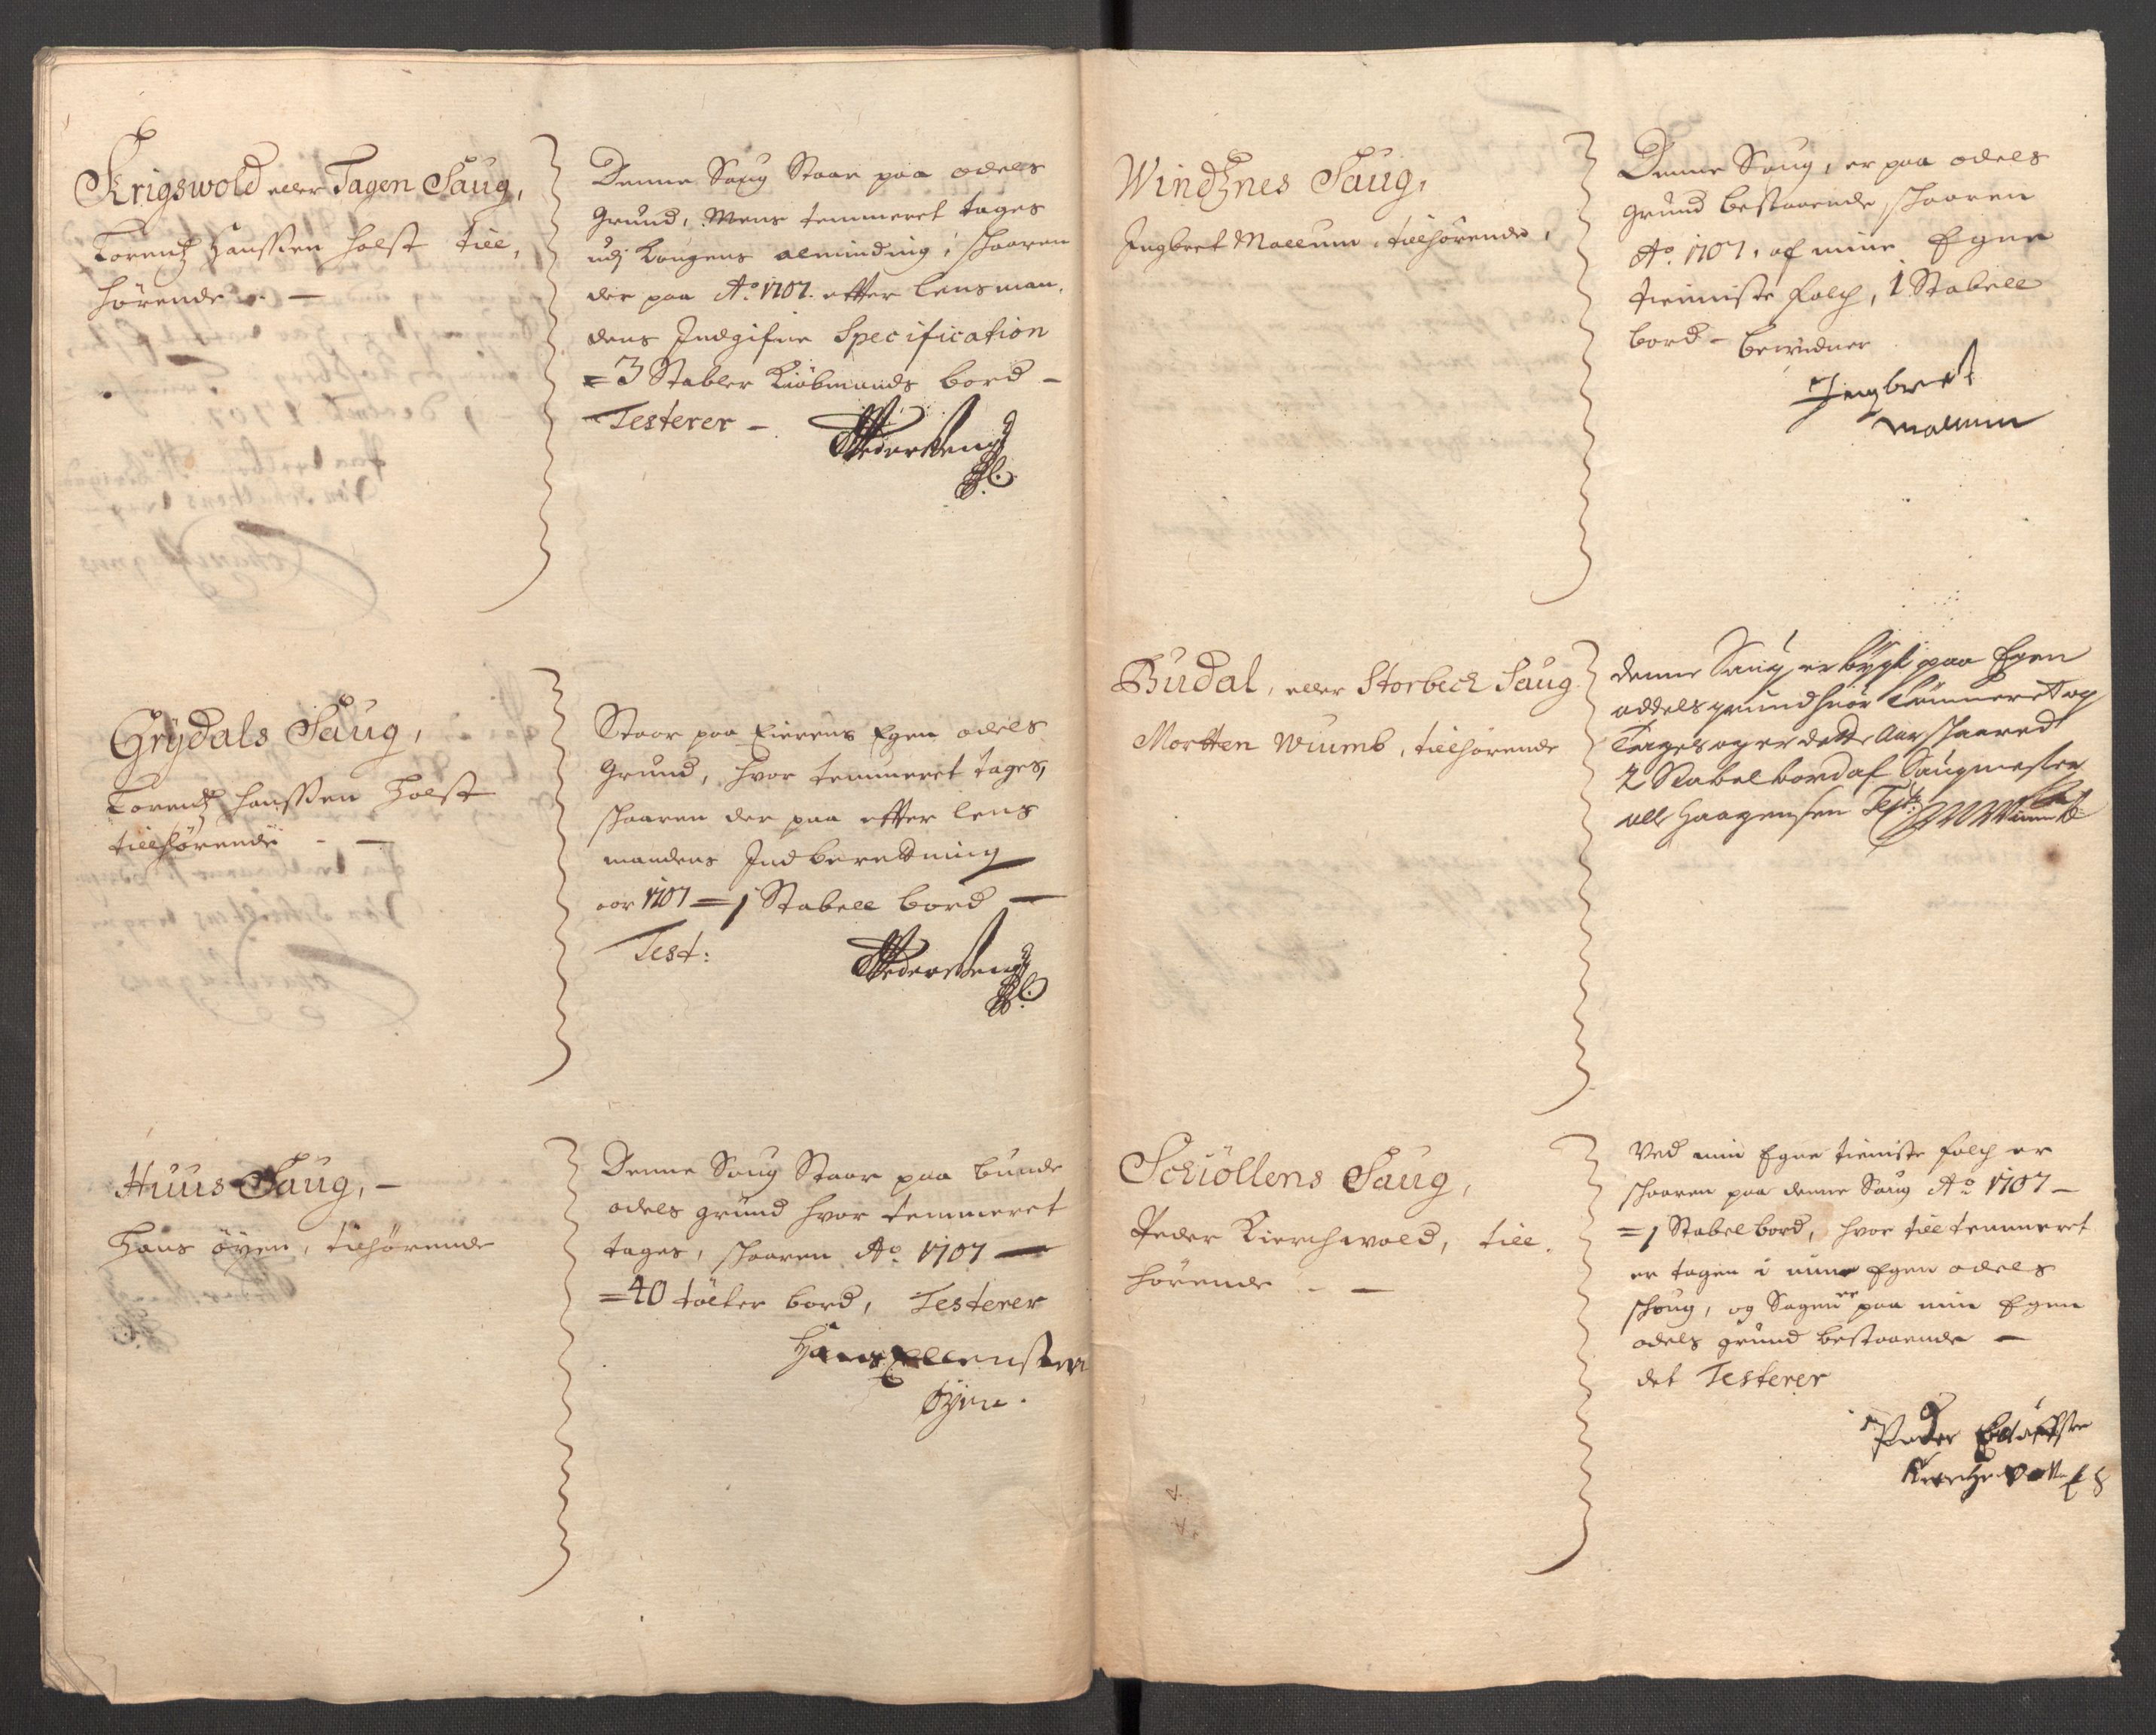 Krigswold eller Tagen Saug,
Lorentz Hanssen Holst till,
hørende. –
Denne Saug Staar paa odels
Grund, Mens temmeret tages
udj Kongens alminding, skaaren
der paa Aº 1707. efter lensman,
dens Indgifne Specification
= 3 Stabler Kiöbmands bord –
Testerer –
Grydals Saug,
Lorentz Hanssen Holst
tillhørende – –
Staar paa Eierens Egen odels
Grund, hvor temmeret tages,
skaaren der paa efter lens
mandens Indberedning
aar 1707 = 1 Stabell bord –
Test:
Huus Saug, –
Hans öyen, tilhörende
Denne Saug Staar paa bunde
odels grund hvor temmeret
tages, skaaren Aº 1707 –
= 40 tölter bord, Testerer
Hans Ellenssen
Öyen.
Windznes Saug,
Ingbret Mallum, tilhörende,
Denne Saug, er paa odels
grund bestaaende, skaaren
Aº. 1707, af mine Egne
tienniste folch, 1 Stabell
bord – bevidner
Ingbret
Mallum
Budal, eller Storbeck Saug
Mortten Wiumb, tilhørende
denne Saug er bygt paa Egen
oddels grund huor Tømmeret og
Tages og er dette Aar skaared
2 Stabel bord af Saugmester
oll Haagensen Test:
Sckiöllens Saug,
Peder Kierchwold, till,
hörende – –
Ved min Egne tieniste folch er
skaaren paa denne Saug Aº 1707 –
= 1 Stabel bord, hvor till temmeret
er tagen i min Egen odels
skoug, og Sagen er paa min Egen
odels grund bestaaende –
det Testerer
Peder